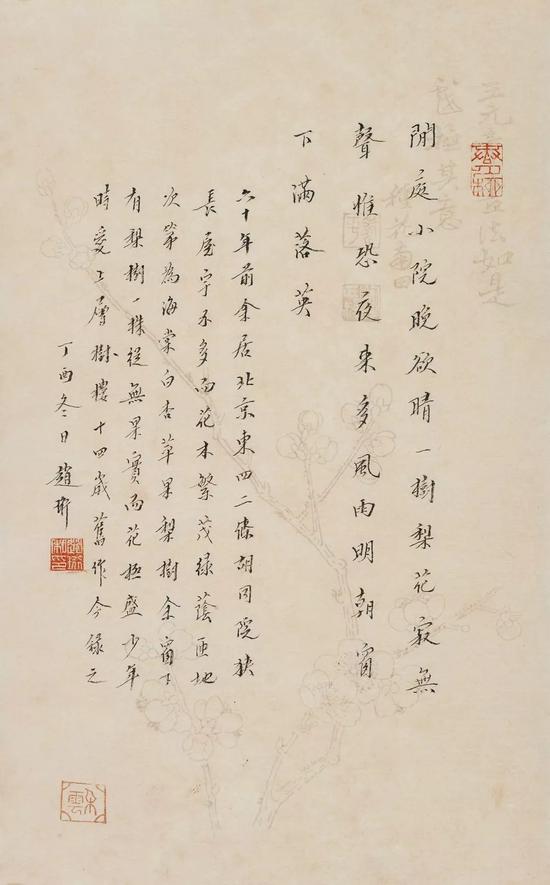 王元章畫法如是
其意
閑庭小院晚欲晴一樹梨花寂無
聲惟恐夜來多風雨明朝窗
下滿落英
六十年前余居北京東四二條胡同院狹
長屋宇不多而花木繁茂綠蔭匝地
次第為海棠白杏苹果梨樹余窗下
有梨樹一株從無果實而花極盛少年
時愛上層樹樓十四歲舊作今錄之
丁酉冬日趙珩